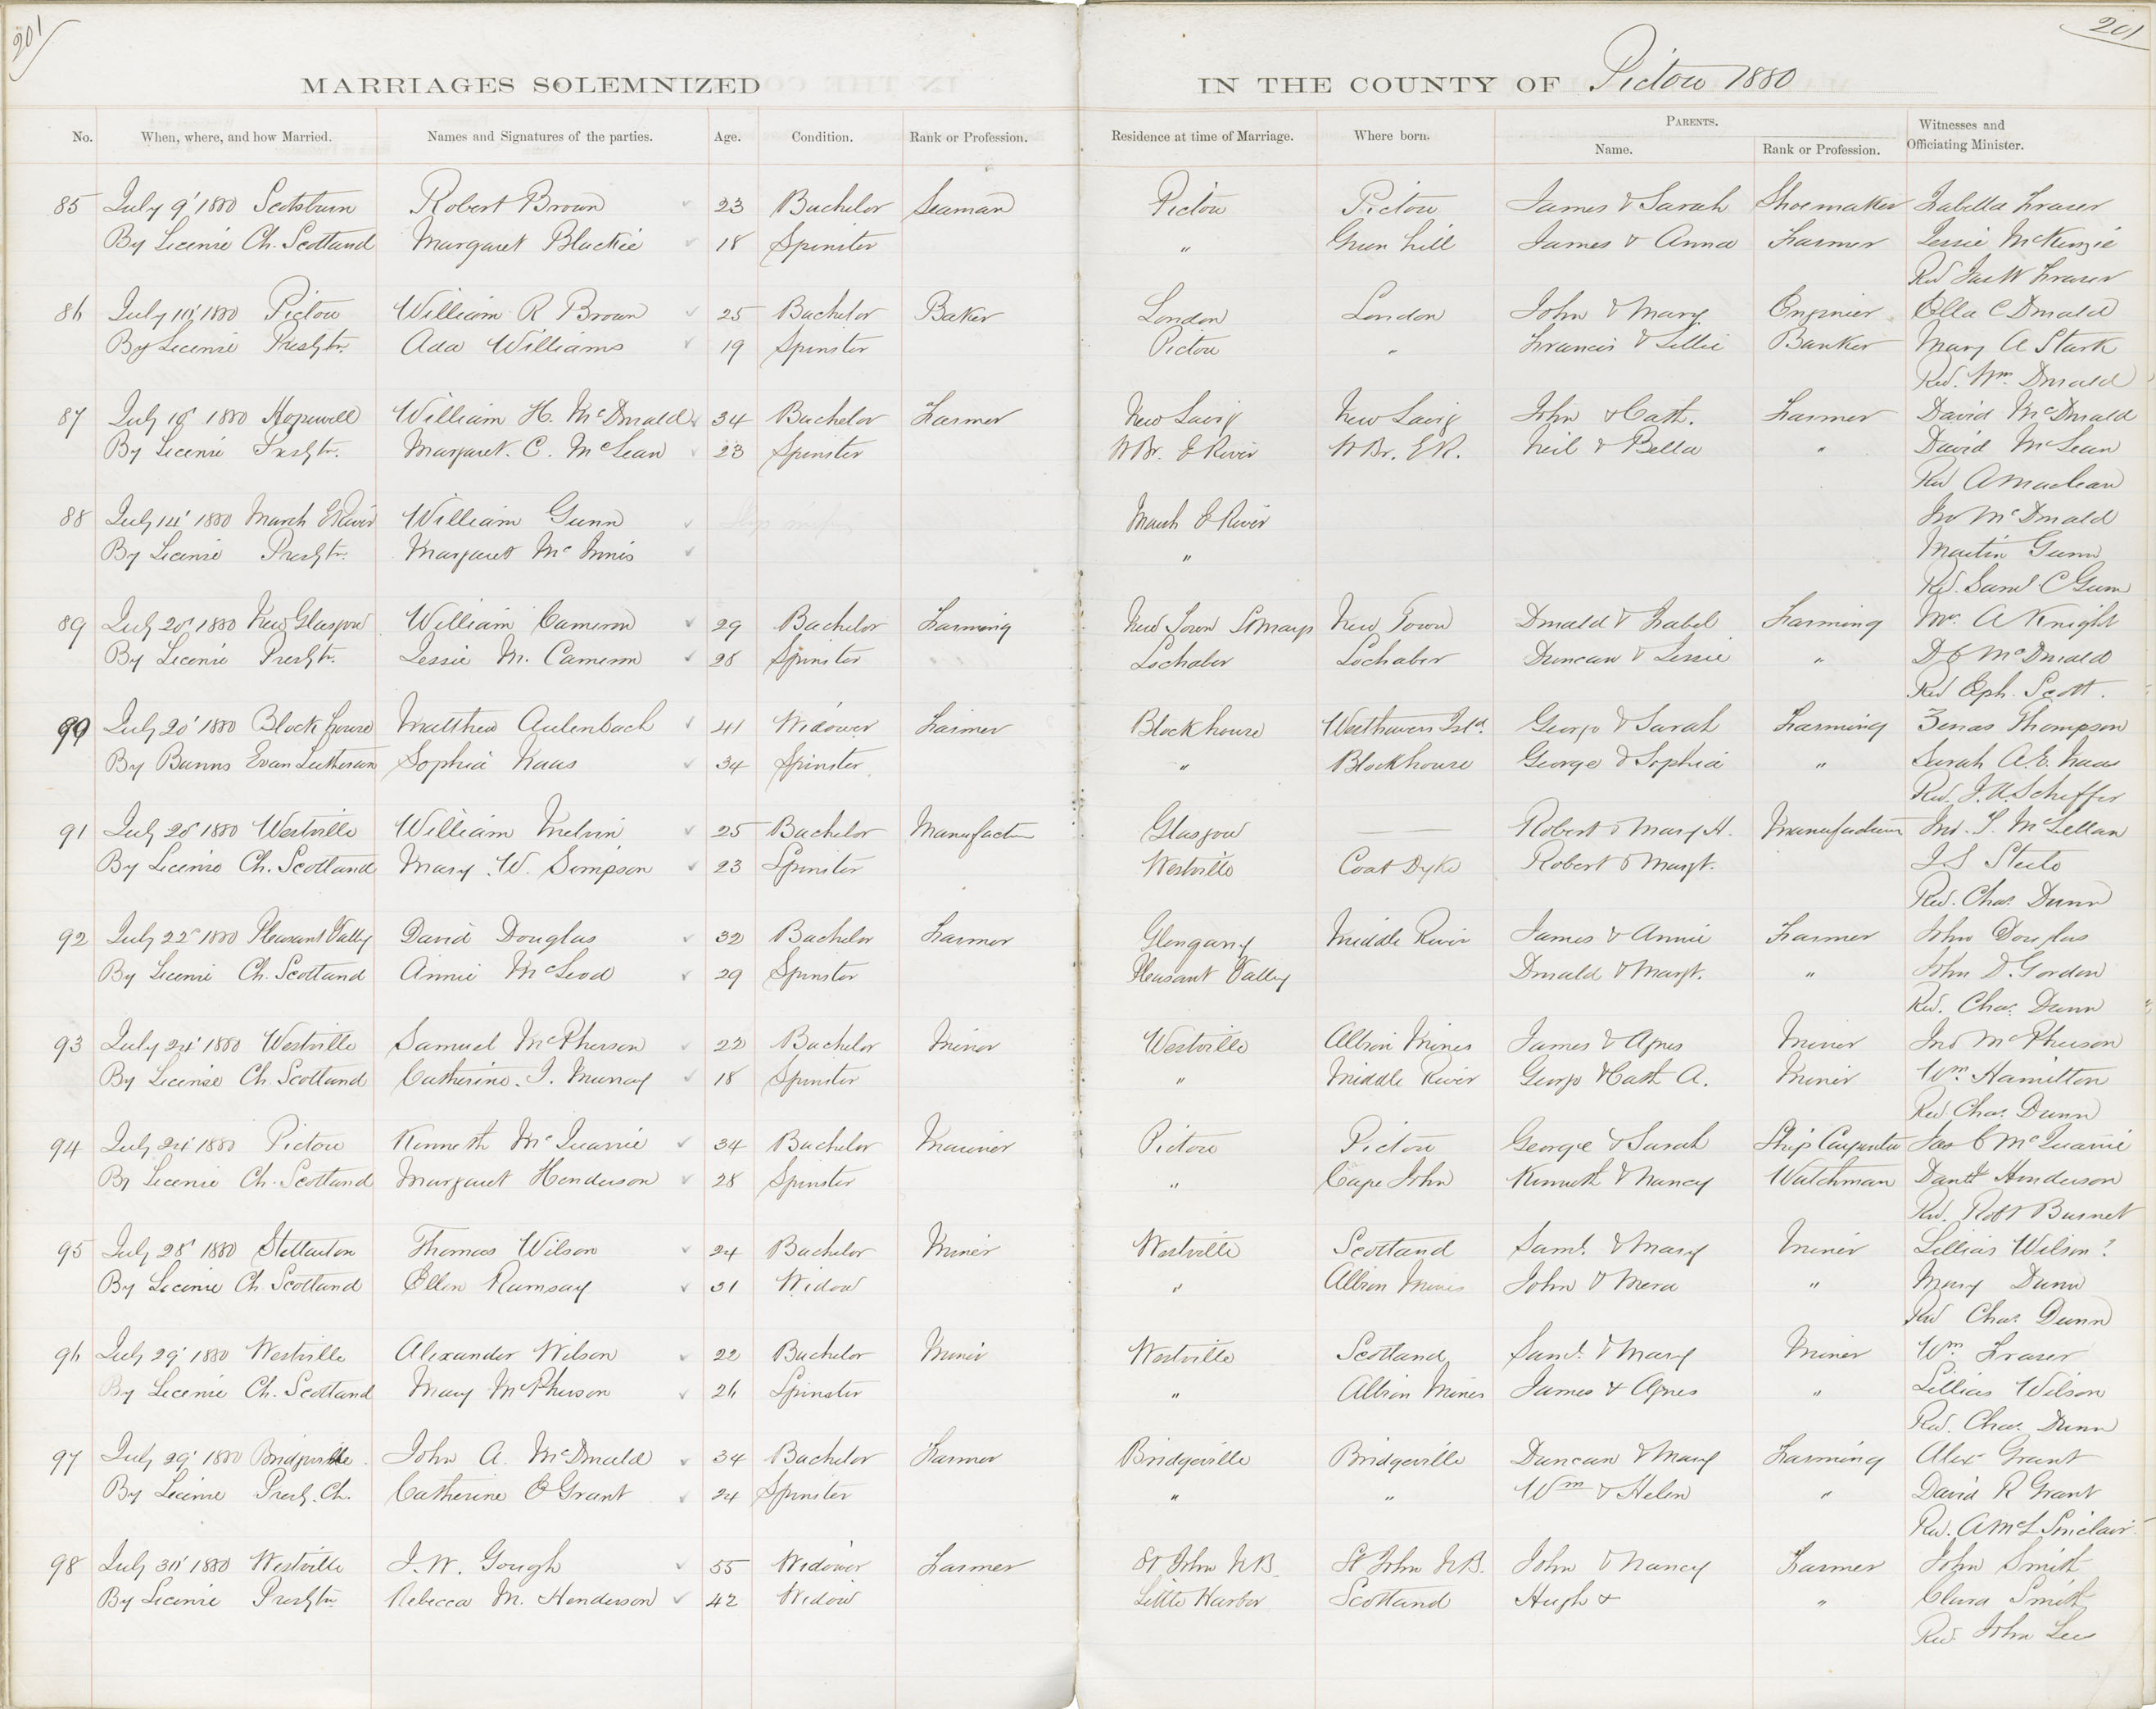 201
201
MARRIAGES SOLEMNIZED IN THE COUNTY OF Pictou 1880
No. When, where, and how Married. Names and Signatures of the parties. Age. Condition. Rank or Profession. Residence at time of Marriage. Where born. PARENTS. Name. Rank or Profession. Witnesses and Officiating Minister.
85 July 9' 1880 Scotsburn Robert Brown 23 Bachelor Seaman Pictou Pictou James & Sarah Shoemaker Isabella Fraser
By License Ch. Scotland Margaret Blackie 18 Spinster " Green Hill James & Anna Farmer Jessie McKenzie
Rev Jas W Fraser
86 July 1880 Pictou William R Brown 25 Bachelor Baker London London John & Mary Engineer Ella C Donald
By License Presbtn. Ada Williams 19 Spinster Pictou " Francis & Lillie Banker Mary A Stark
Rev. Wm. Donald
87 July 1880 Hopewell William H. McDonald 34 Bachelor Farmer New Lairg New Lairg John & Cath. Farmer David McDonald
By License Presbtn. Margaret. C. McLean 23 Spinster W Br. E River W Br. E R. Neil & Bella " David McLean
Rev A Maclean
88 July 14' 1880 Marsh E River William Gunn Marsh E River Jno McDonald
By License Presbtn. Margaret McInnis " Martin Gunn
Rev. Saml C Gunn
89 July 20' 1880 New Glasgow William Cameron 29 Bachelor Farming New Town St Marys New Town Donald & Isabel Farming A Knight
By License Presbtn. Jessie M. Cameron 28 Spinster Lochaber Lochaber Duncan & Jessie " McDonald
Rev Eph. Scott.
90 July 20' 1880 Block house Matthew Aulenbach 41 Widower Farmer Blockhouse Isld. George & Sarah Farming Zenas Thompson
By Banns Evan Lutheran Sophia Naas 34 Spinster " Blockhouse George & Sophia " Sarah A. E. Naas
Rev. J. A. Scheffer
91 July 20' 1880 Westville William Melvin 25 Bachelor Manufactr Glasgow Robert & Mary H. Manufacturer Jno. McLellan
By License Ch. Scotland Mary W. Simpson 23 Spinster Westville Coat Dyke Robert & Margt. J S Steele
Rev. Chas. Dunn
92 July 22' 1880 Pleasant Vally David Douglas 32 Bachelor Farmer Glengarry Middle River James & Annie Farmer John Douglas
By License Ch. Scotland Annie McLeod 29 Spinster Pleasant Valley Donald & Margt. " John D. Gordon
Rev. Chas. Dunn
93 July 24' 1880 Westville Samuel McPherson 22 Bachelor Miner Westville Albion Mines James & Agnes Miner Jno McPherson
By License Ch. Scotland Catherine. J. Murray 18 Spinster " Middle River George & Cath A. Miner Wm. Hamilton
Rev Chas. Dunn
94 July 24' 1880 Pictou Kenneth McQuarrie 34 Bachelor Mariner Pictou Pictou George & Sarah Ship Carpenter Jas C McQuarrie
By License Ch. Scotland Margaret Henderson 28 Spinster " Cape John Kenneth & Nancy Watchman Henderson
Rev. Robt Burnet
95 July 28' 1880 Stellarton Thomas Wilson 24 Bachelor Miner Westville Scotland Saml. & Mary Miner Lillias Wilson?
By License Ch. Scotland Ellen Ramsay 31 Widow " Albion Mines John & Mera " Mary Dunn
Rev Chas. Dunn
96 July 29' 1880 Westville Alexander Wilson 22 Bachelor Miner Westville Scotland Saml. & Mary Miner Wm Fraser
By License Ch. Scotland Mary McPherson 26 Spinster " Albion Mines James & Agnes " Lillias Wilson
Rev. Chas. Dunn
97 July 29' 1880 Bridgeville John A. McDonald 34 Bachelor Farmer Bridgeville Bridgeville Duncan & Mary Farming Alex Grant
By License Presb. Ch. Catherine C Grant 24 Spinster " " Wm & Helen " David R Grant
Rev. A McL Sinclair
98 July 1880 Westville J. W. Gough 55 Widower Farmer St John N B. St John N B. John & Nancy Farmer John Smith
By License Presbtn. Rebecca M. Henderson 42 Widow Little Harbor Scotland Hugh & " Clara Smith
Rev. John Lee